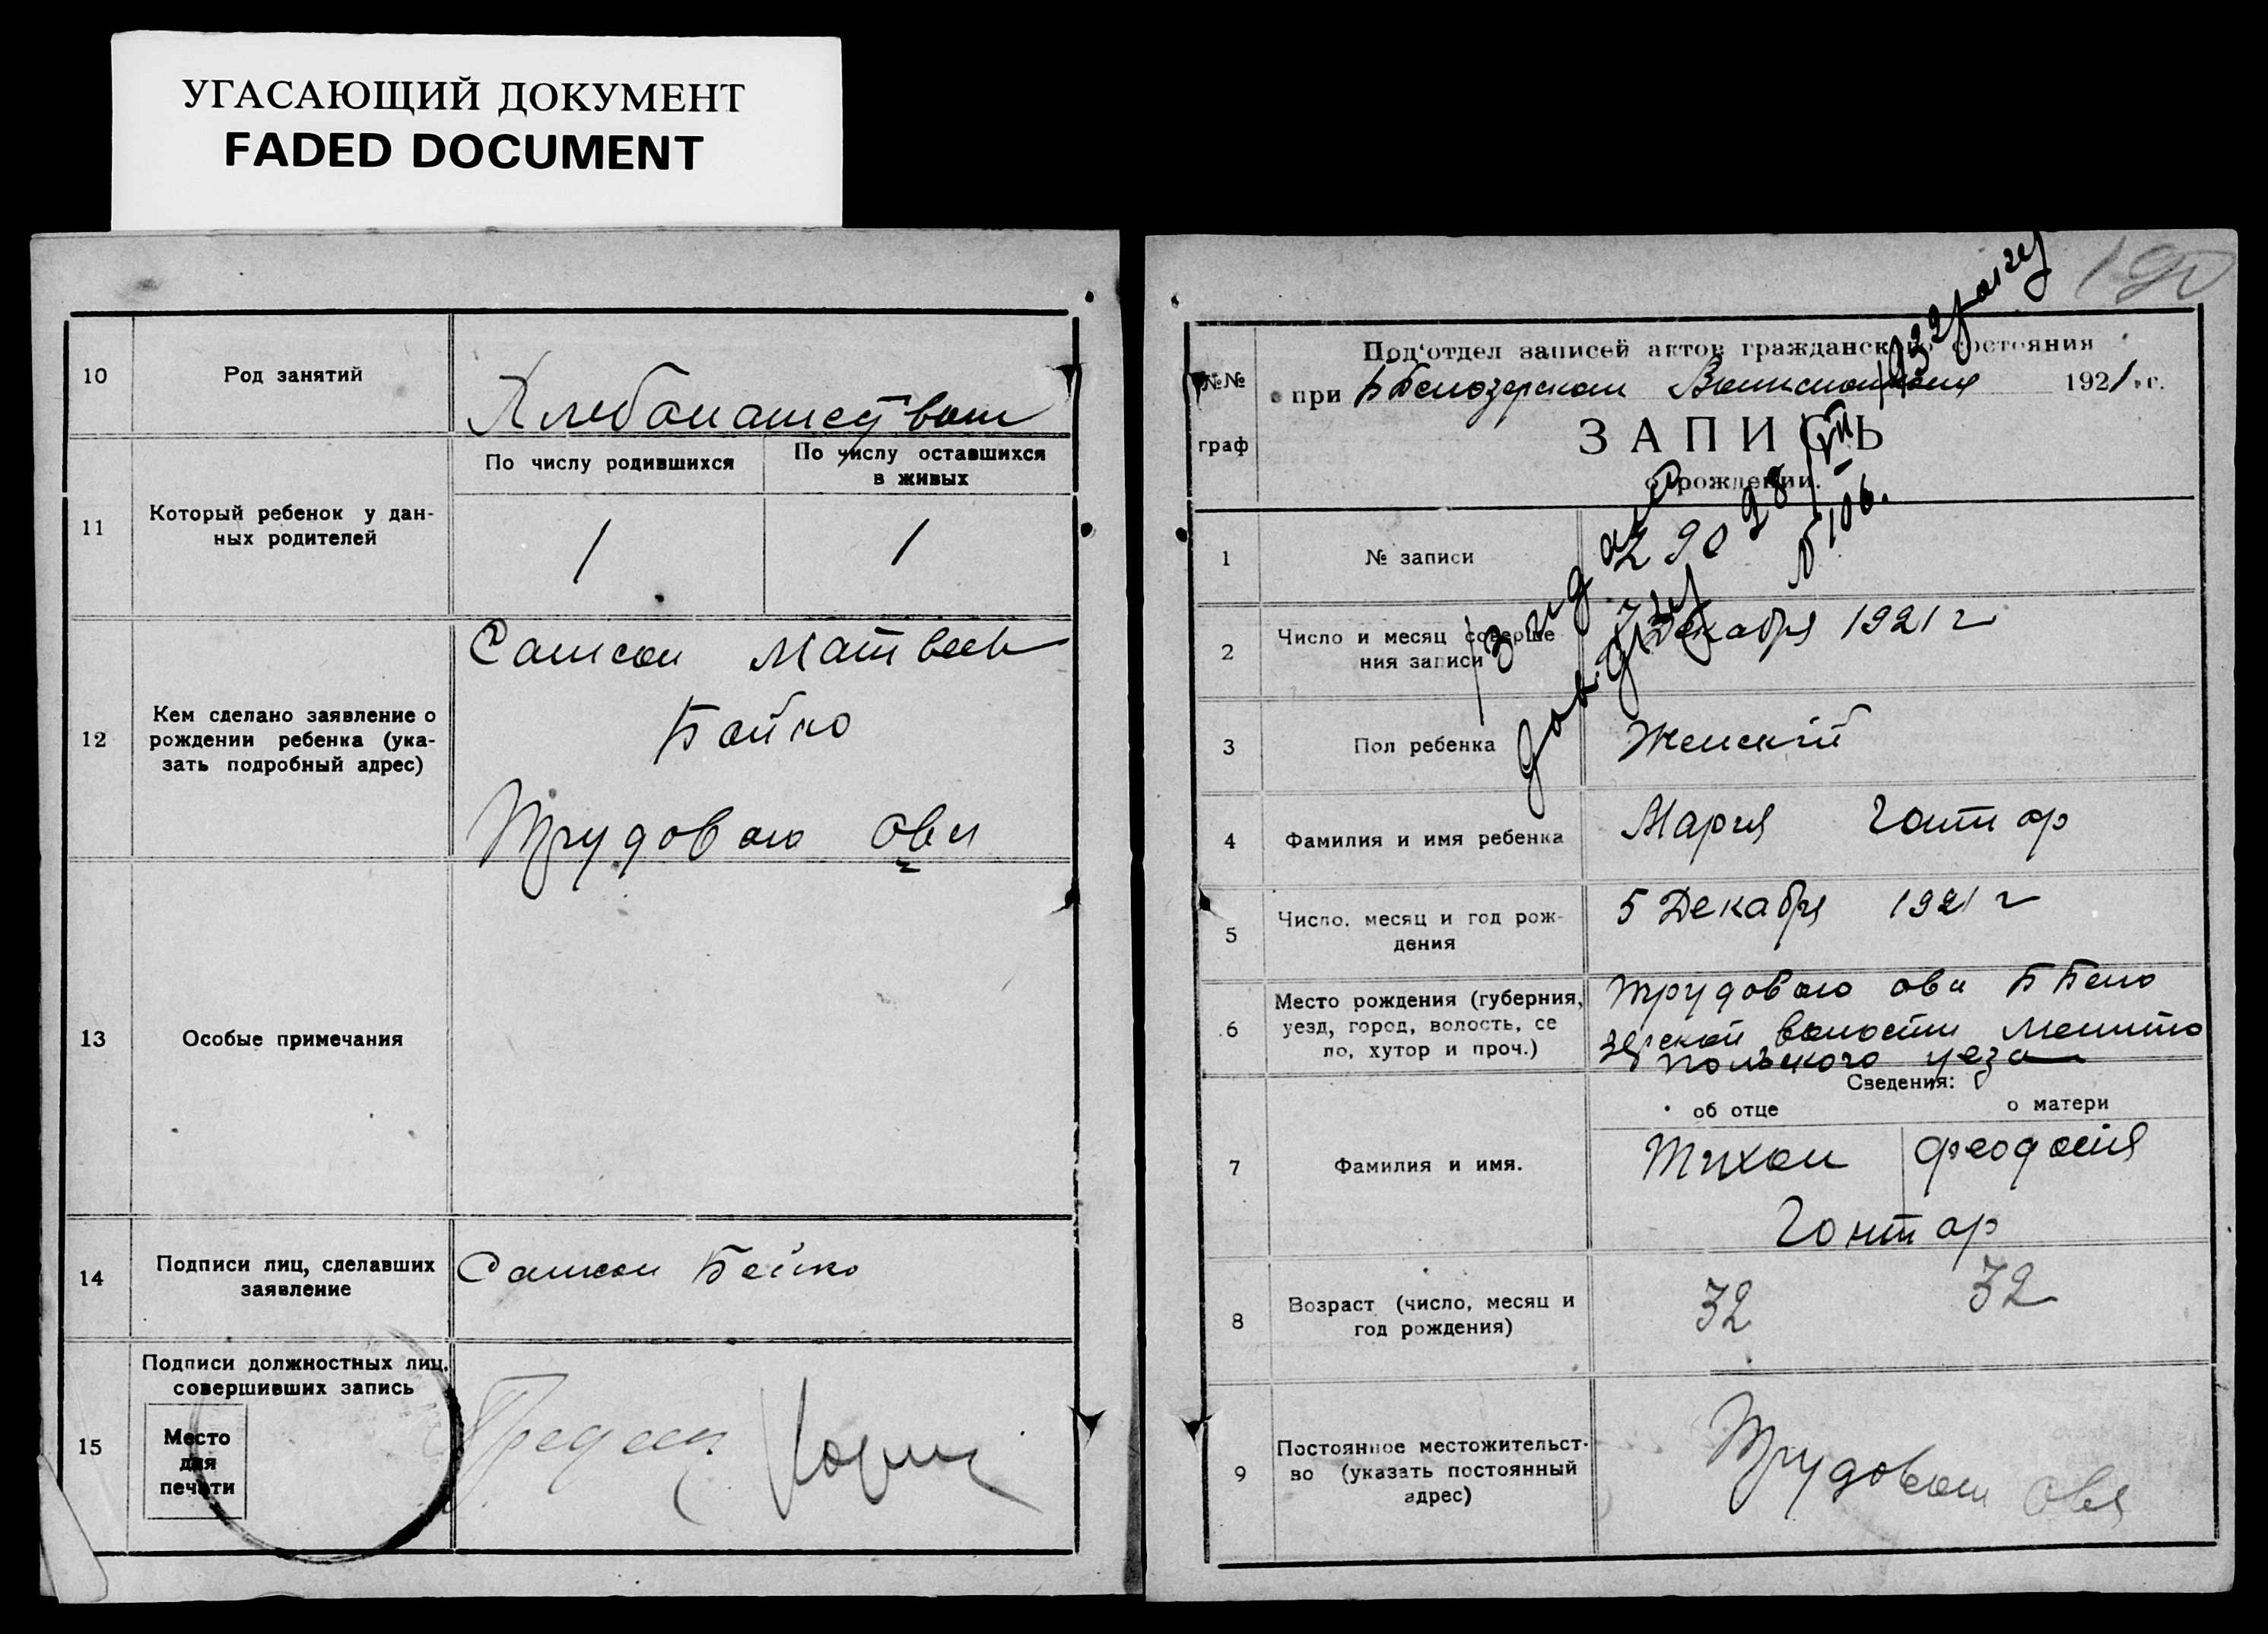 УГАСАЮЩИЙ ДОКУМЕНТ
FADED DOCUMENT
10
Род занятий
Хлебопашеством
11
Который ребенок у дан-
ных родителей
По числу родившихся
По числу оставшихся
в живых
1
1
12
Кем сделано заявление о
рождении ребенка (ука-
зать подробный адрес)
Самсон Матвеев
Бойко
Трудового ова
13
Особые примечания
14
Подписи лиц, сделавших
заявление
Самсон Бойко
15
Подписи должностных лиц,
совершивших запись
Место
для
печати
190
№№
граф
Под'отдел записей актов гражданского состояния
при Б Белозерском 1921 г.
ЗАПИСЬ
о рождении.
1
№ записи
290
2
Число и месяц соверше
ния записи
7 Декабря 1921 г
3
Пол ребенка
Женский
4
Фамилия и имя ребенка
Мария Гонтар
5
Число, месяц и год рож-
дения
5 Декабря 1921 г
6
Место рождения (губерния,
уезд, город, волость, се
ло, хутор и проч.)
Трудового ова Б Бело
зерской волости Мелито
польского уезда
Сведения:
об отце
о матери
7
Фамилия и имя.
Тихон
Феодосия
Гонтар
8
Возраст (число, месяц и
год рождения)
32
32
9
Постоянное местожительст-
во (указать постоянный
адрес)
Трудовом ова
№ 106.